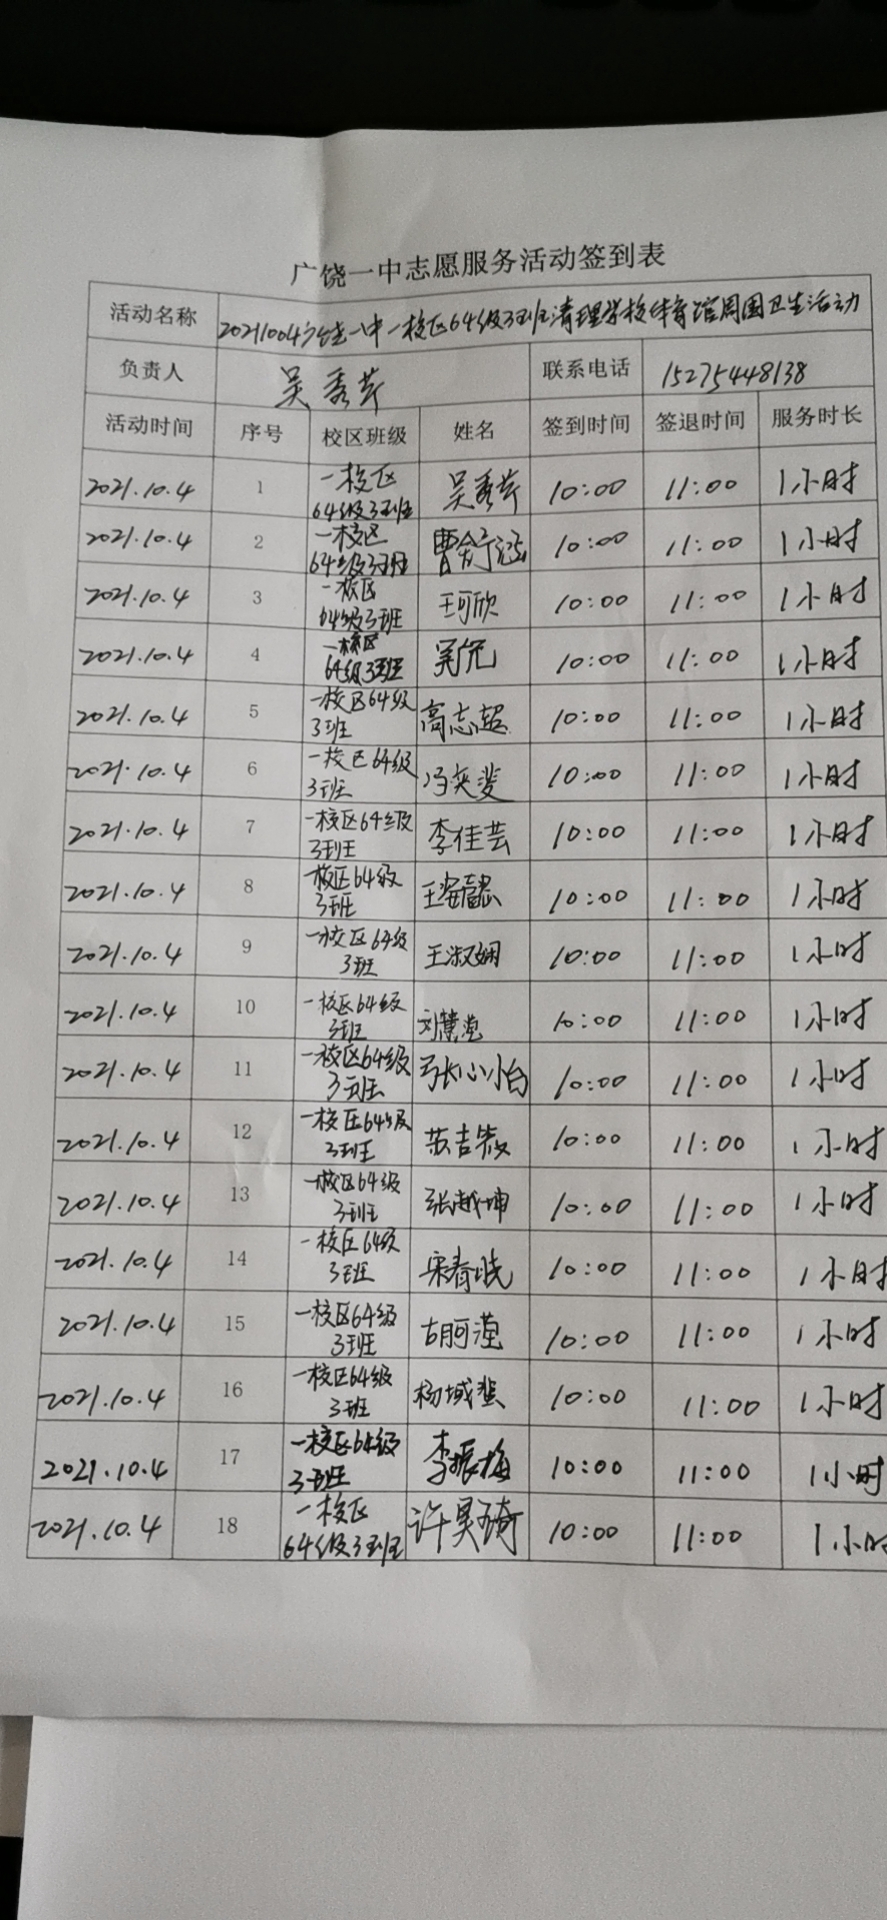 广饶一中志愿服务活动签到表
活动名称 20211004广饶一中一校区64级3班清理学校体育馆周围卫生活动
负责人 吴秀芹 联系电话 15275448138
活动时间 序号 校区班级 姓名 签到时间 签退时间 服务时长
2021.10.4 1 一校区 吴秀芹 10:00 11:00 1小时
64级3班
2021.10.4 2 一校区 曹舒涵 10:00 11:00 1小时
64级3班
2021.10.4 3 一校区 王可欣 10:00 11:00 1小时
64级3班
2021.10.4 4 一校区 10:00 11:00 1小时
64级3班
2021.10.4 5 一校区64级 高志超 10:00 11:00 1小时
3班
2021.10.4 6 一校区64级 冯英斐 10:00 11:00 1小时
3班
2021.10.4 7 一校区64级 李佳芸 10:00 11:00 1小时
3班
2021.10.4 8 一校区64级 10:00 11:00 1小时
3班
2021.10.4 9 一校区64级 王淑娴 10:00 11:00 1小时
3班
2021.10.4 10 一校区64级 刘慧滢 10:00 11:00 1小时
3班
2021.10.4 11 一校区64级 张心怡 10:00 11:00 1小时
3班
2021.10.4 12 一校区64级 10:00 11:00 1小时
3班
2021.10.4 13 一校区64级 张越坤 10:00 11:00 1小时
3班
2021.10.4 14 一校区64级 宋春晓 10:00 11:00 1小时
3班
2021.10.4 15 一校区64级 10:00 11:00 1小时
3班
2021.10.4 16 一校区64级 10:00 11:00 1小时
3班
2021.10.4 17 一校区64级 李振梅 10:00 11:00 1小时
3班
2021.10.4 18 一校区 许昊琦 10:00 11:00 1小时
64级3班